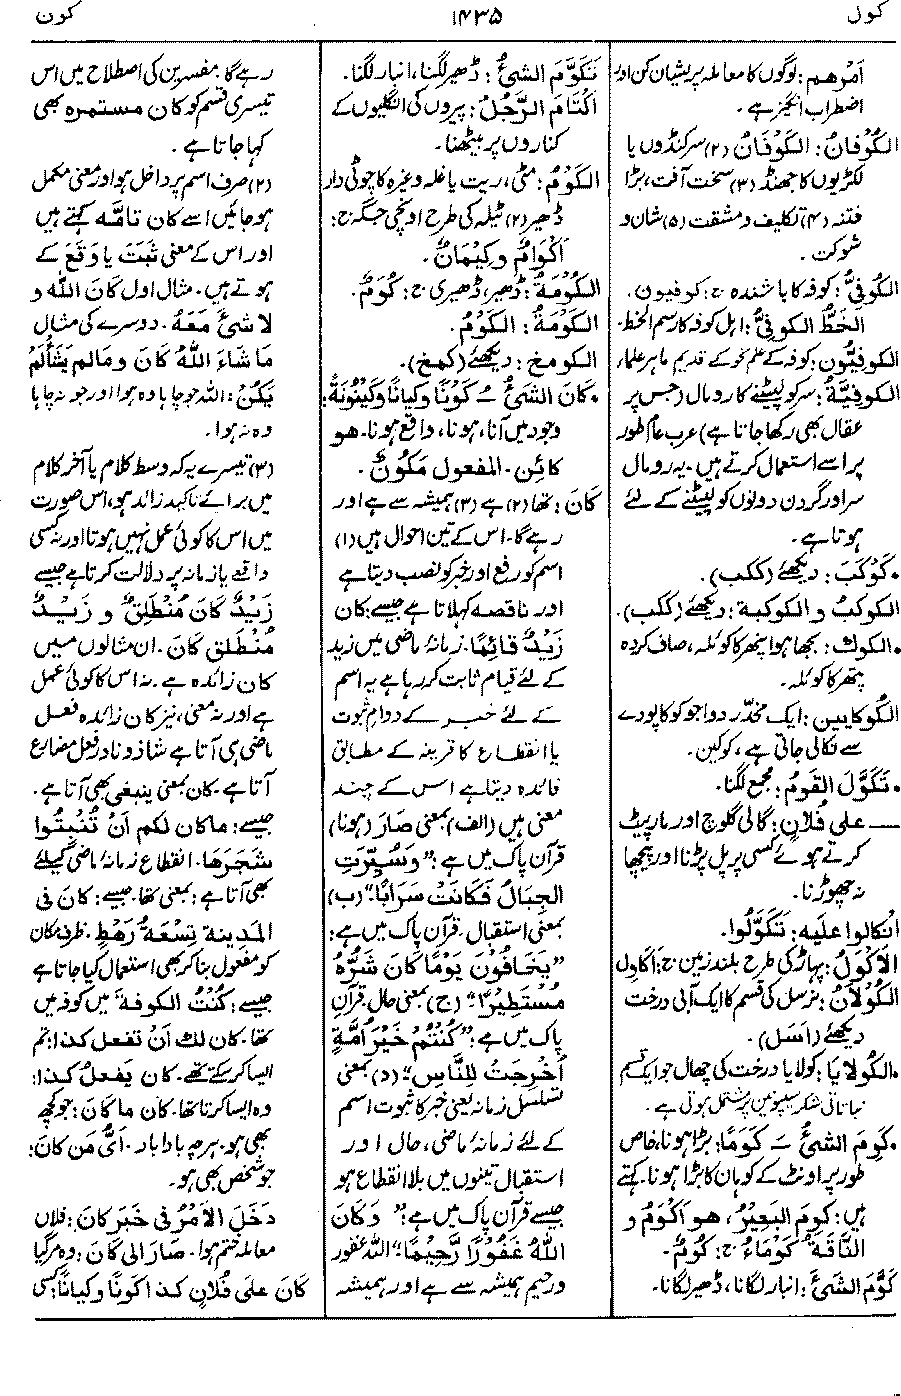 کول
۱۴۳۵
کون
اَمْرُهم: لوگوں کا معاملہ پریشان کن اور
اضطراب انگیز ہے۔
الكُوْفَانُ: الكَوْفَانُ (۲) سرکنڈوں یا
لکڑیوں کا جھنڈ (۳) سخت آفت، بڑا
فتنہ (۴) تکلیف و مشقت (۵) شان و
شوکت۔
الكُوْفِيُّ: کوفہ کا باشندہ ج: کوفیون۔
الخَطُّ الكوفِيُّ: اہل کوفہ کا رسم الخط۔
الكوفِيُّون: کوفہ کے علم نحو کے قدیم ماہر علماء
الكوفِيَّةُ: سر کو لپیٹنے کا رومال (جس پر
عقال بھی رکھا جاتا ہے) عرب عام طور
پر اسے استعمال کرتے ہیں۔ یہ رومال
سر اور گردن دونوں کو لپیٹنے کے لئے
ہوتا ہے۔
• كَوْكَبَ: دیکھئے (ککب)۔
الكوكبُ والكوكبة: دیکھئے (ککب)۔
• الكوك: بجھا ہوا پتھر کا کوئلہ، صاف کردہ
پتھر کا کوئلہ۔
الكُوكايين: ایک مخدّر دوا جو کوکا پودے
سے نکالی جاتی ہے، کوکین۔
• تَكَوَّلَ القَومُ: مجمع لگنا۔
— على فُلانٍ: گالی گلوچ اور مارپیٹ
کرتے ہوئے کسی پر پل پڑنا اور پیچھا
نہ چھوڑنا۔
انْكالوا عليه: تَكَوَّلُوا۔
الأَكْوَلُ: پہاڑ کی طرح بلند زمین ج: أَكَاوِل
الكُوْلَانُ: نرسل کی قسم کا ایک آبی درخت
دیکھئے (اَسَل)۔
• الكُولايَا: کولایا درخت کی چھال جو ایک قسم
نباتاتی شکر سیپونین پر مشتمل ہوتی ہے۔
• كَوِمَ الشيءُ ـَ كَوَمًا: بڑا ہونا، خاص
طور پر اونٹ کے کوہان کا بڑا ہونا۔ کہتے
ہیں: كَوِمَ البَعِيْرُ، هو اَكْوَمُ و
النَّاقَةُ كَوْمَاءُ ج: كُوْمٌ۔
كَوَّمَ الشيءَ: انبار لگانا، ڈھیر لگانا۔
تَكَوَّمَ الشيءُ: ڈھیر لگنا، انبار لگنا۔
اكْتَامَ الرَّجُلُ: پیروں کی انگلیوں کے
کناروں پر بیٹھنا۔
الكَوْمُ: مٹی، ریت یا غلہ وغیرہ کا چوٹی دار
ڈھیر (۲) ٹیلہ کی طرح اونچی جگہ ج:
اَكْوَامٌ وكِيْمَانٌ۔
الكُوْمَةُ: ڈھیر، ڈھیری ج: كُوَمٌ۔
الكَوْمَةُ: الكَوْمُ۔
الكومخ: دیکھئے (کمخ)۔
• كَانَ الشيءُ ـُ كَوْنًا وكِيَانًا وكَيْنُونَةً:
وجود میں آنا، ہونا، واقع ہونا۔ هو
كائِن۔ المفعول مَكُونٌ۔
كَانَ: تھا (۲) ہے (۳) ہمیشہ سے ہے اور
رہے گا۔ اس کے تین احوال ہیں (۱)
اسم کو رفع اور خبر کو نصب دیتا ہے
اور ناقصہ کہلاتا ہے جیسے: كان
زَيْدٌ قائِمًا۔ زمانۂ ماضی میں زید
کے لئے قیام ثابت کر رہا ہے یہ اسم
کے لئے خبر کے دوام ثبوت
یا انقطاع کا قرینہ کے مطابق
فائدہ دیتا ہے اس کے چند
معنی ہیں (الف) بمعنی صَارَ (ہونا)
قرآن پاک میں ہے: "وَسُيِّرَتِ
الجِبَالُ فَكَانَتْ سَرَابًا" (ب)
بمعنی استقبال۔ قرآن پاک میں ہے:
"يَخَافُونَ يَوْمًا كَانَ شَرُّهٗ
مُسْتَطِيْرًا" (ج) بمعنی حال۔ قرآن
پاک میں ہے: "كُنْتُمْ خَيْرَ اُمَّةٍ
اُخْرِجَتْ لِلنَّاسِ" (د) بمعنی
تسلسل زمانہ یعنی خبر کا ثبوت اسم
کے لئے زمانۂ ماضی، حال اور
استقبال تینوں میں بلا انقطاع ہو
جیسے قرآن پاک میں ہے: "وَكَانَ
اللّٰهُ غَفُوْرًا رَّحِيْمًا" اللہ غفور
و رحیم ہمیشہ سے ہے اور ہمیشہ
رہے گا۔ مفسرین کی اصطلاح میں اس
تیسری قسم کو کان مستمرہ بھی
کہا جاتا ہے۔
(۲) صرف اسم پر داخل ہو اور معنی مکمل
ہو جائیں اسے کان تامّہ کہتے ہیں
اور اس کے معنی ثَبَتَ یا وَقَعَ کے
ہوتے ہیں۔ مثال اول كَانَ الله و
لا شيءَ مَعَهٗ۔ دوسرے کی مثال
مَا شَاءَ اللهُ كَانَ وَ مالم يَشَأْ لَمْ
يَكُنْ: اللہ جو چاہا وہ ہوا اور جو نہ چاہا
وہ نہ ہوا۔
(۳) تیسرے یہ کہ وسط کلام یا آخر کلام
میں برائے تاکید زائد ہو، اس صورت
میں اس کا کوئی عمل نہیں ہوتا اور نہ کسی
واقعے یا زمانہ پر دلالت کرتا ہے جیسے
زَيْدٌ كَانَ مُنْطَلِقٌ و زَيْدٌ
مُنْطَلِقٌ كَانَ۔ ان مثالوں میں
كان زائدہ ہے۔ نہ اس کا کوئی عمل
ہے اور نہ معنی، نیز کان زائدہ فعل
ماضی ہی آتا ہے شاذ و نادر فعل مضارع
آتا ہے۔ کان بمعنی ینبغی بھی آتا ہے۔
جیسے: ماكان لكم أنْ تُنْبِتُوا
شَجَرَهَا۔ انقطاع زمانۂ ماضی کیلئے
بھی آتا ہے: بمعنی تھا۔ جیسے: كَانَ في
المدينة تِسْعَةُ رَهْطٍ۔ ظرف مکان
کو مفعول بنا کر بھی استعمال کیا جاتا ہے
جیسے: كُنْتُ الكوفةَ میں کوفہ میں
تھا۔ كان لك أنْ تفعل كذا: تم
ایسا کر سکتے تھے۔ كان يَفعلُ كذا:
وہ ایسا کرتا تھا۔ كان ما كان: جو کچھ
بھی ہو۔ ہرچہ بادا باد۔ أيُّ مَن كان:
جو شخص بھی ہو۔
دَخَلَ الأمْرُ في خَبَرِ كانَ: فلاں
معاملہ ختم ہوا۔ صَارَ إلى كانَ: وہ مر گیا
كَانَ على فُلانٍ كذا كَونًا وكِيانًا: کسی